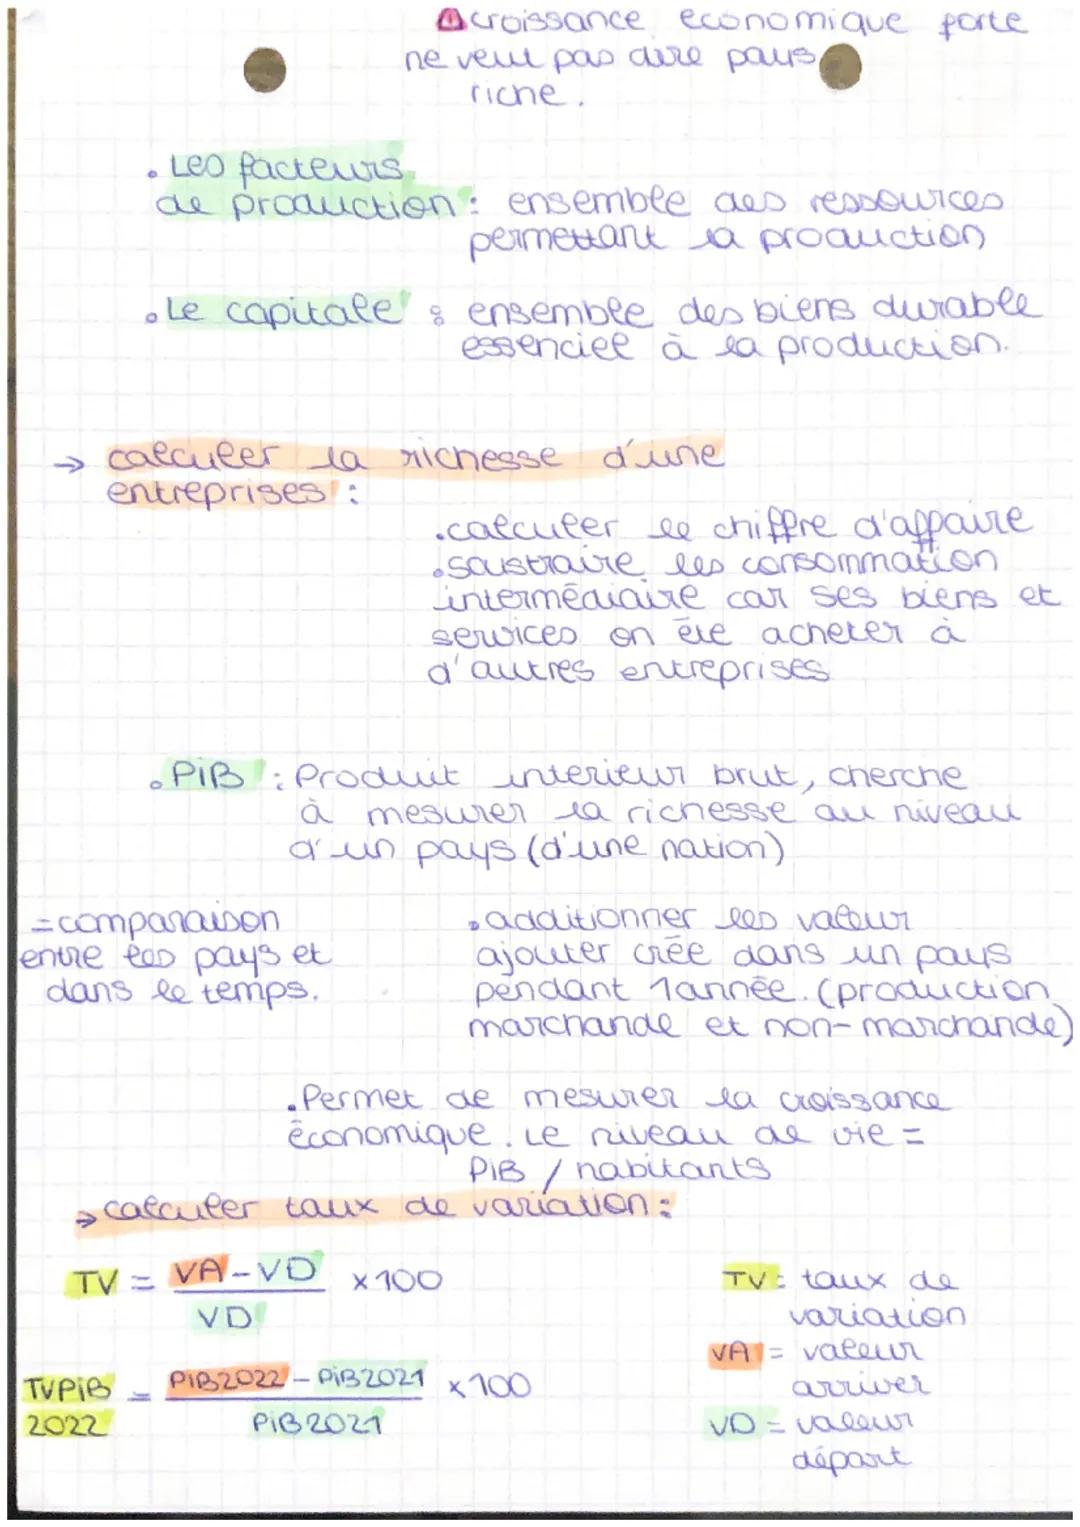 ⚠croissance economique forte
ne veut pas dire pays
riche.
• Les facteurs
de production : ensemble des ressources
permettant la production
• Le capitale : ensemble des biens durable
essenciel à la production.
→ calculer la richesse d'une
entreprises :
• calculer le chiffre d'affaire
• soustraire les consommation
intermédiaire car ses biens et
services on été acheter à
d'autres entreprises
• PiB : Produit interieur brut, cherche
à mesurer la richesse au niveau
d'un pays (d'une nation)
= comparaison
entre les pays et
dans le temps.
• additionner les valeur
ajouter crée dans un pays
pendant 1 année. (production
marchande et non-marchande)
• Permet de mesurer la croissance
économique. Le niveau de vie =
PiB / habitants
→ calculer taux de variation :
TV = VA - VD x 100
VD
TV : taux de
variation
VA = valeur
arriver
VD = valeur
départ
TVPiB 2022 = PiB2022 - PiB2021 x 100
PiB 2021